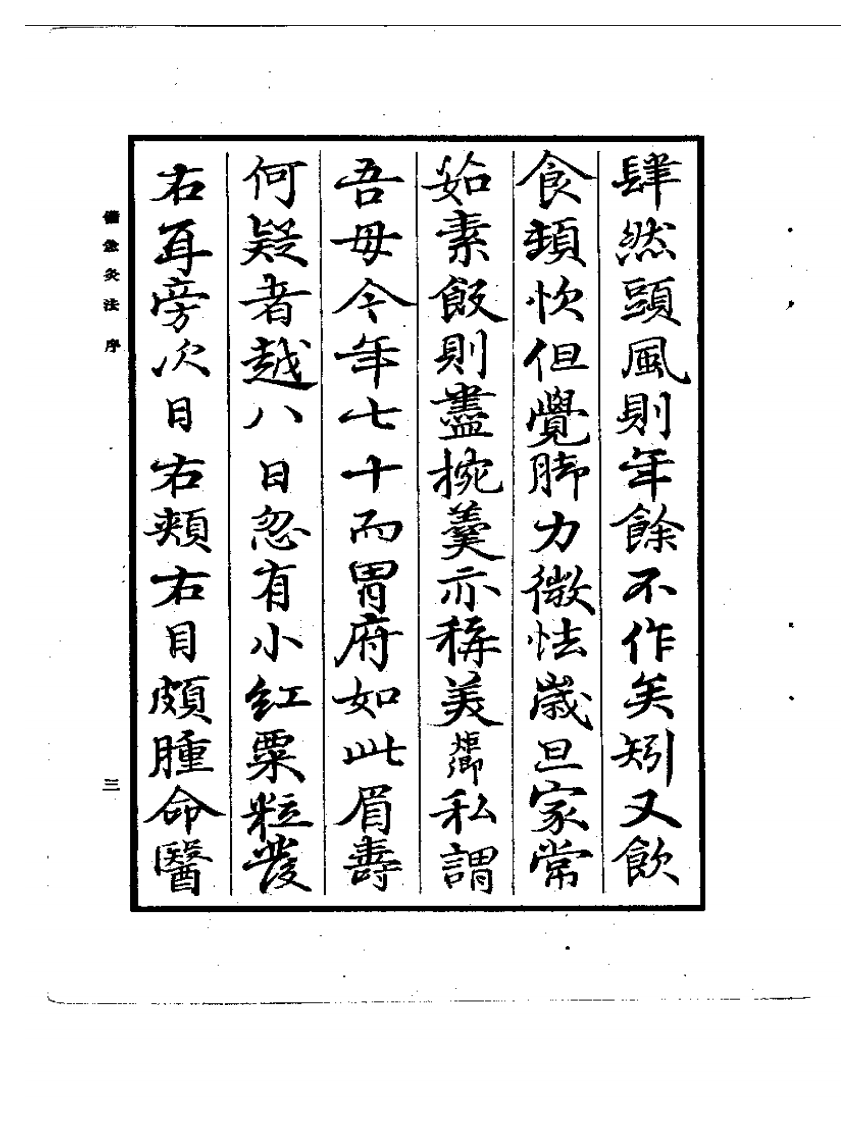 肆然頭風則年餘不作矣矧又飲
食頓忺但覺脚力微怯歲旦家常
茹素飯則盡捥羹亦稱美炬卿私謂
吾母今年七十而胃府如此眉壽
何疑者越八日忽有小紅粟粒發
右耳旁次日右頰右目頗腫命醫
備急灸法 序
三